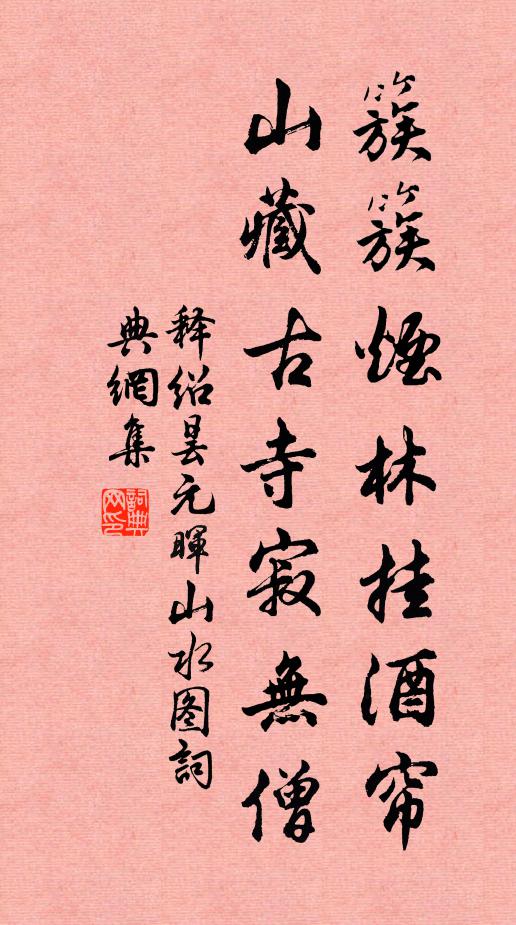 簇簇煙林挂酒帘
山藏古寺寂無僧
释绍昙元暉山水图詞
典網集
詞典
网印